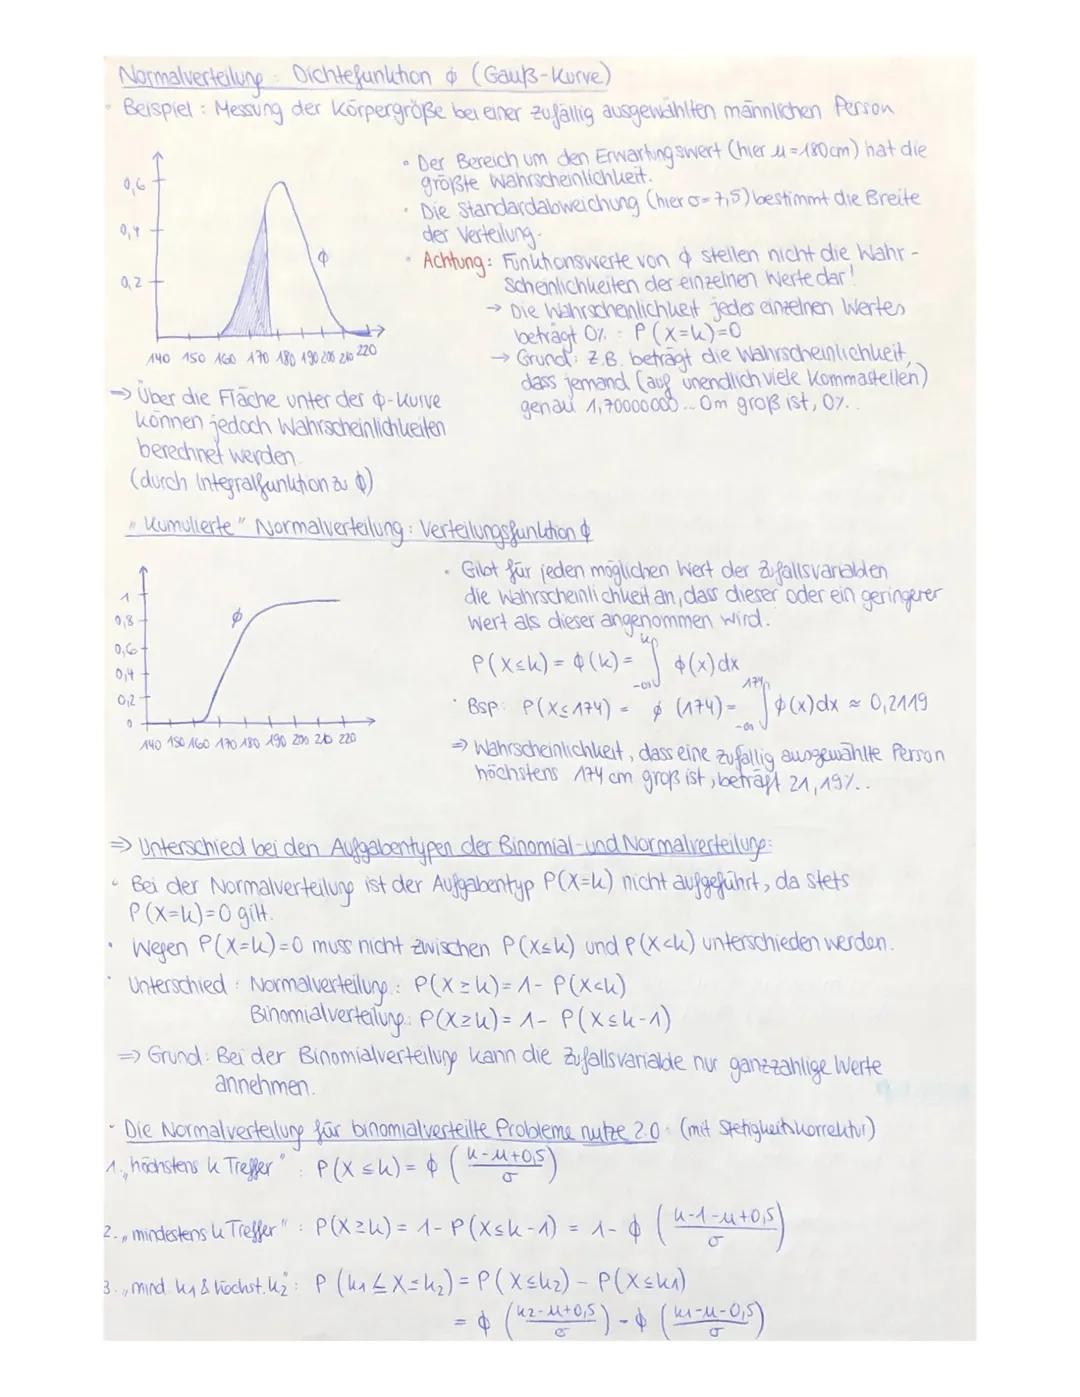 Normalverteilung: Dichtefunktion ϕ (Gauß-Kurve)
• Beispiel: Messung der Körpergröße bei einer zufällig ausgewählten männlichen Person
0,6
0,4
0,2
ϕ
140 150 160 170 180 190 200 210 220
• Der Bereich um den Erwartungswert (hier μ=180cm) hat die
größte Wahrscheinlichkeit.
• Die Standardabweichung (hier σ=7,5) bestimmt die Breite
der Verteilung.
• Achtung: Funktionswerte von ϕ stellen nicht die Wahr-
scheinlichkeiten der einzelnen Werte dar!
→ Die Wahrscheinlichkeit jedes einzelnen Wertes
beträgt 0% : P(X=k)=0
→ Grund: Z.B. beträgt die Wahrscheinlichkeit,
dass jemand (auf unendlich viele Kommastellen)
genau 1,70000000...0m groß ist, 0%.
⇒ Über die Fläche unter der ϕ-Kurve
können jedoch Wahrscheinlichkeiten
berechnet werden.
(durch Integralfunktion zu ϕ)
„Kumulierte" Normalverteilung: Verteilungsfunktion ϕ
1
0,8
0,6
0,4
0,2
0
ϕ
140 150 160 170 180 190 200 210 220
• Gibt für jeden möglichen Wert der Zufallsvariablen
die Wahrscheinlichkeit an, dass dieser oder ein geringerer
Wert als dieser angenommen wird.
P(X≤k) = ϕ(k) = ∫_{-∞}^{k} ϕ(x)dx
• Bsp: P(X≤174) = ϕ(174) = ∫_{-∞}^{174} ϕ(x)dx ≈ 0,2119
⇒ Wahrscheinlichkeit, dass eine zufällig ausgewählte Person
höchstens 174 cm groß ist, beträgt 21,19%.
⇒ Unterschied bei den Aufgabentypen der Binomial- und Normalverteilung:
• Bei der Normalverteilung ist der Aufgabentyp P(X=k) nicht aufgeführt, da stets
P(X=k)=0 gilt.
• Wegen P(X=k)=0 muss nicht zwischen P(X≤k) und P(X<k) unterschieden werden.
• Unterschied: Normalverteilung: P(X≥k)=1-P(X<k)
Binomialverteilung: P(X≥k)=1-P(X≤k-1)
⇒ Grund: Bei der Binomialverteilung kann die Zufallsvariable nur ganzzahlige Werte
annehmen.
• Die Normalverteilung für binomialverteilte Probleme nutze 2.0: (mit Stetigkeitskorrektur)
1. „höchstens k Treffer": P(X≤k)=ϕ((k-μ+0,5)/σ)
2. „mindestens k Treffer": P(X≥k)=1-P(X≤k-1)=1-ϕ((k-1-μ+0,5)/σ)
3. „mind. k1 & höchst. k2": P(k1≤X≤k2)=P(X≤k2)-P(X≤k1)
=ϕ((k2-μ+0,5)/σ)-ϕ((k1-μ-0,5)/σ)